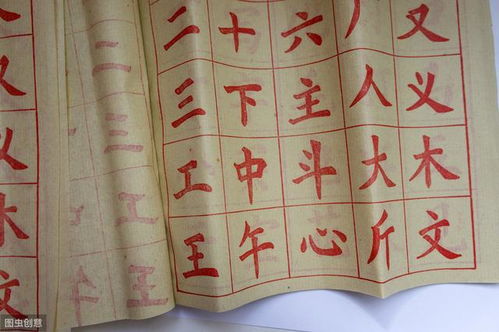 二十六又
三下主人义
工中斗大木
王午心斤文
图虫创意